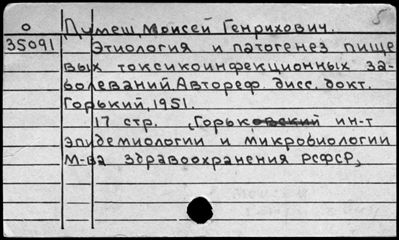 5
О Пумеш Моисей Генрихович.
35091 Этиология и патогенез пище
вых токсикоинфекционных за-
болеваний. Автореф. дисс. докт.
Горький, 1951.
17 стр. (Горьковский ин-т
эпидемиологии и микробиологии
М-ва здравоохранения РСФСР)